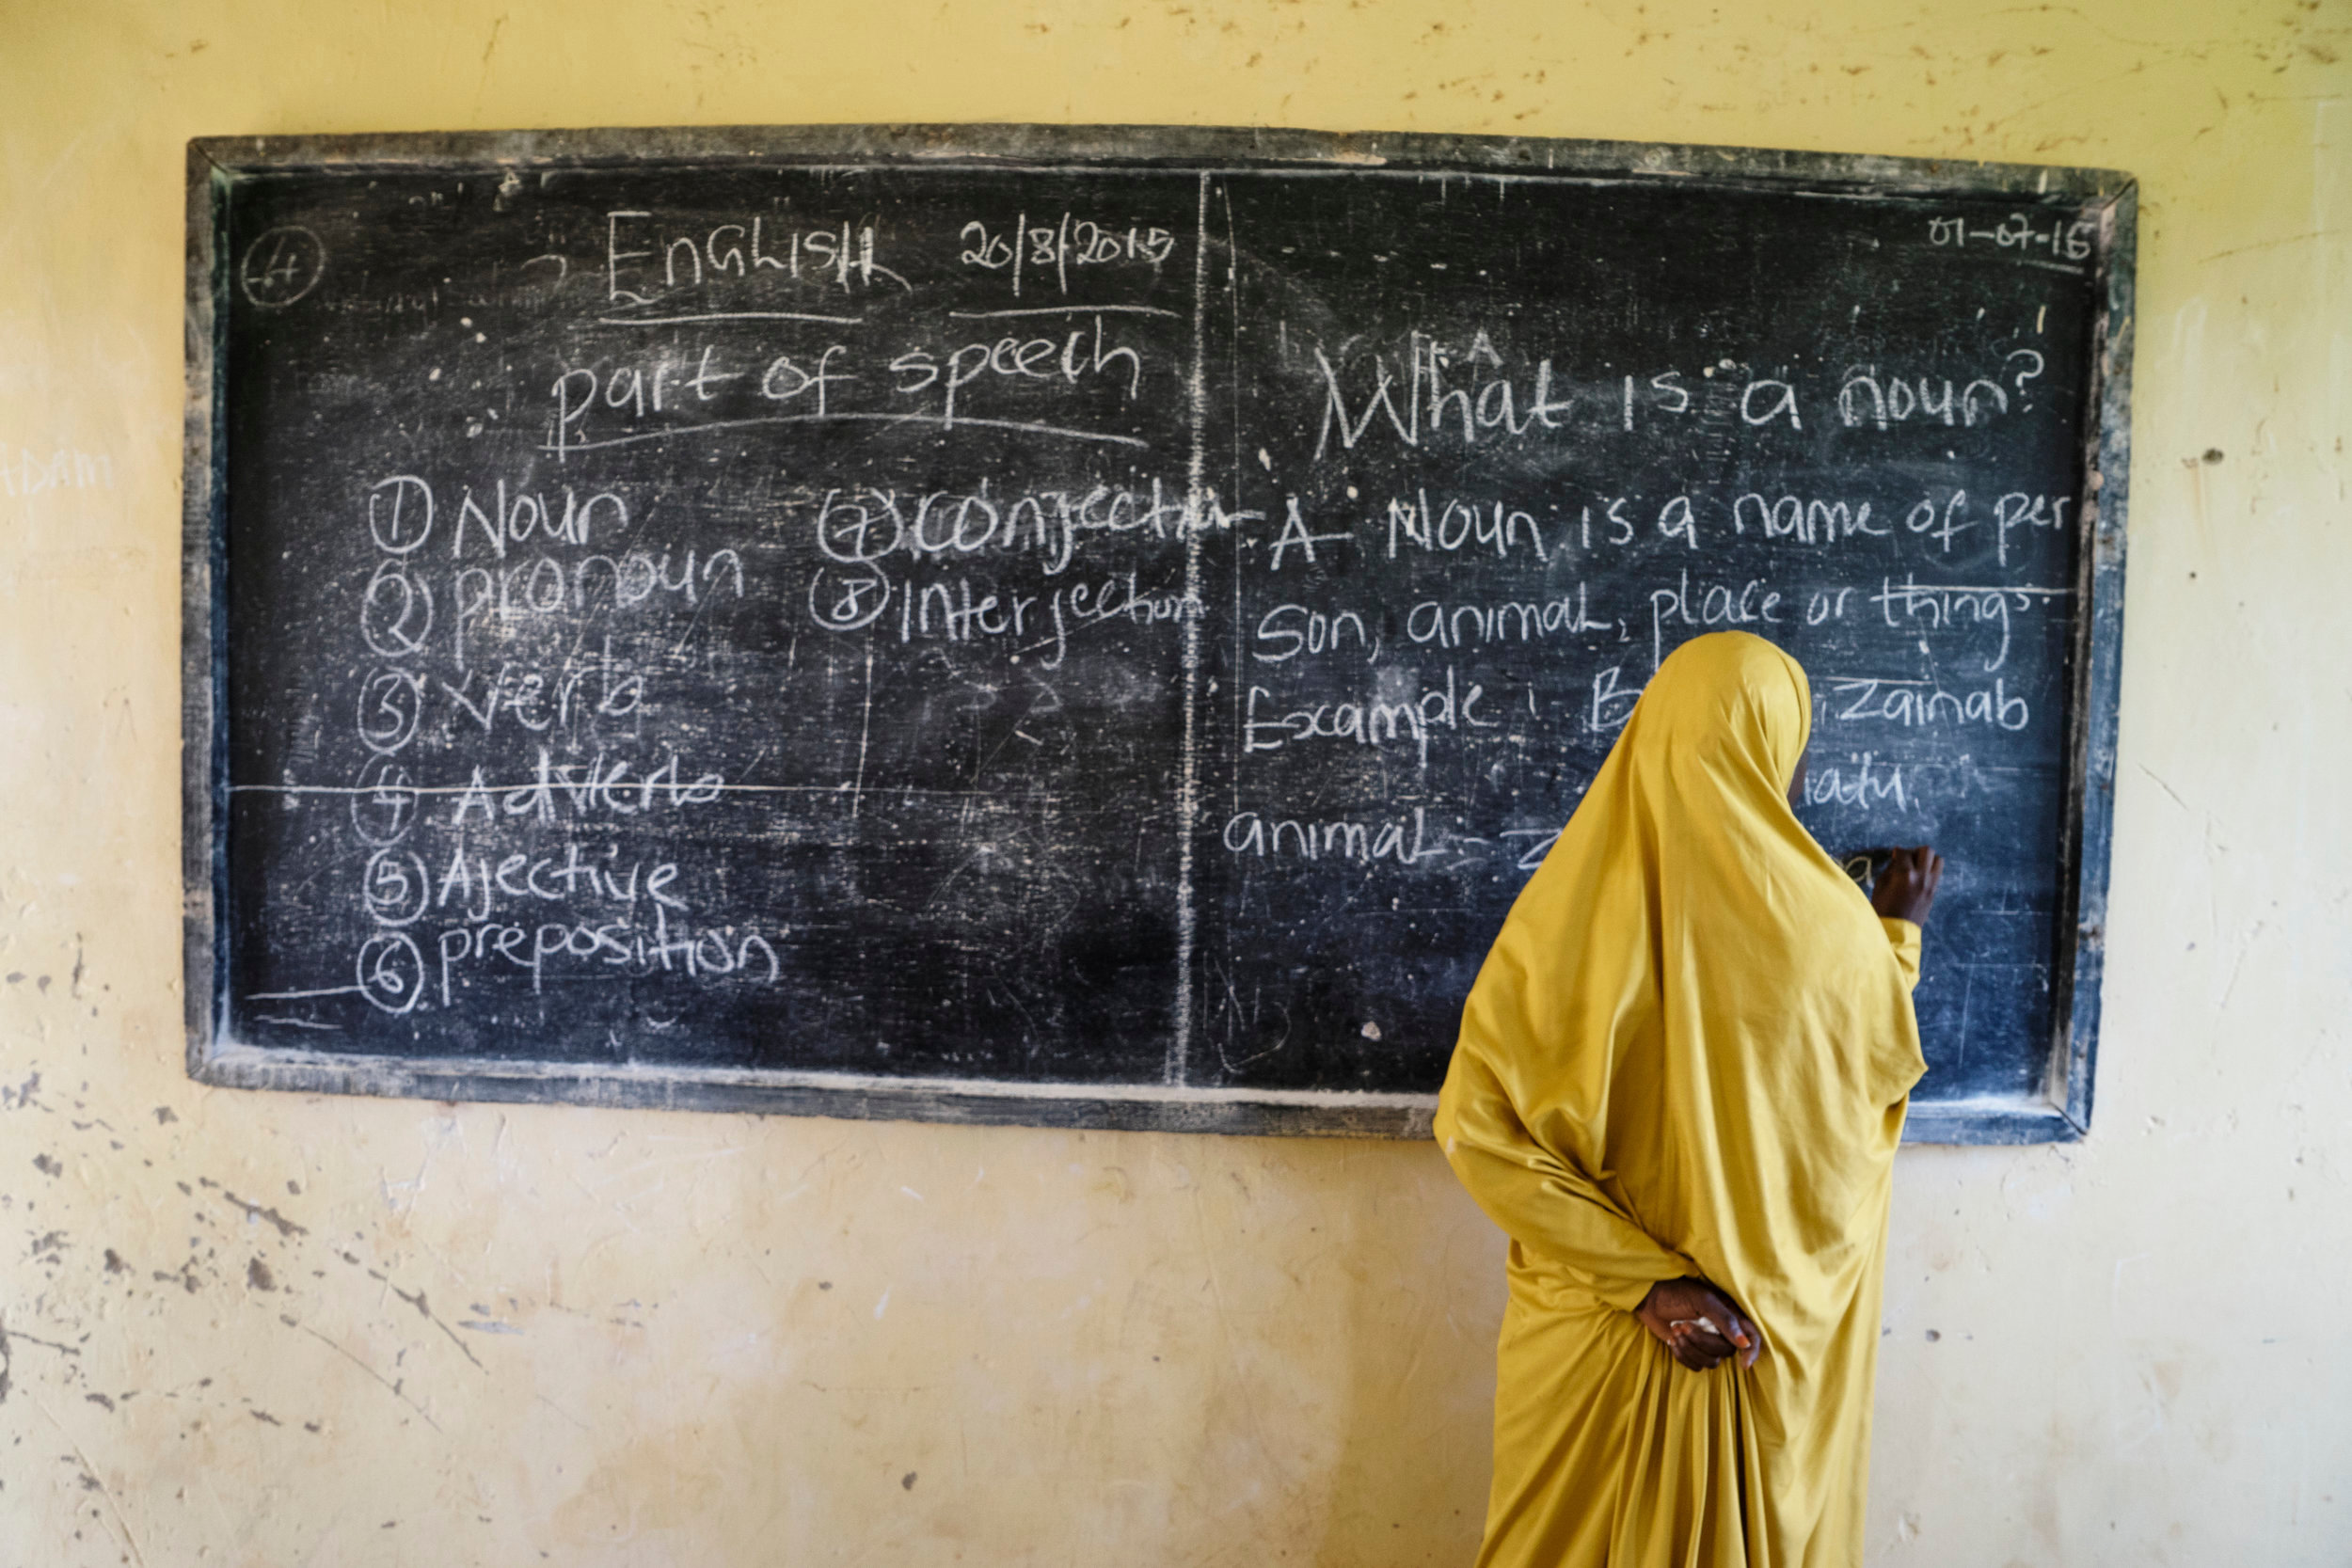 ENGLISH 20/8/2015
part of speech
① Noun
② pronoun
③ Verb
④ Adverb
⑤ Ajective
⑥ preposition
⑦ conjection
⑧ Interjection
01-07-16
What is a noun?
A Noun is a name of per
son, animal, place or things.
Example : Zainab
animal -